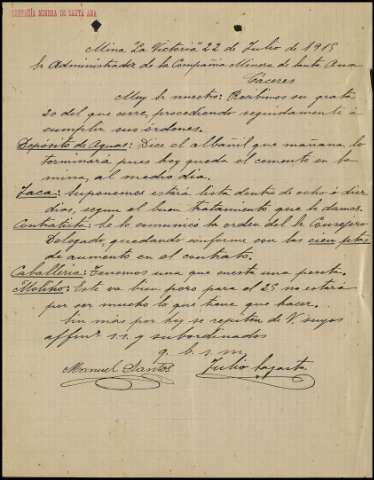 COMPAÑIA MINERA DE SANTA ANA
Mina "La Victoria" 22 de Julio de 1915
Sr Administrador de la Compañia Minera de Santa Ana
Cáceres
Muy Sr nuestro: Recibimos su grata
20 del que curre, procediendo seguidamente á
cumplir sus órdenes.
Depósito de Aguas: Dice el albañil que mañana lo
terminará pues hoy queda el cemento en la
mina, al medio dia.
Jaca: Suponemos estará lista dentro de ocho á diez
dias, segun el buen tratamiento que le damos.
Contratista: Se le comunico la orden del Sr Consejero
Delegado, quedando conforme con las cien ptas
de aumento en el contrato.
Caballeria: Tenemos una que cuesta una peseta.
Molino: Este va bien pero para el 25 no estará
por ser mucho lo que tiene que hacer.
Sin más por hoy se repiten de V. suyos
affmos s.s. y subordinados
q. b. s. m.
Manuel Santos Julio